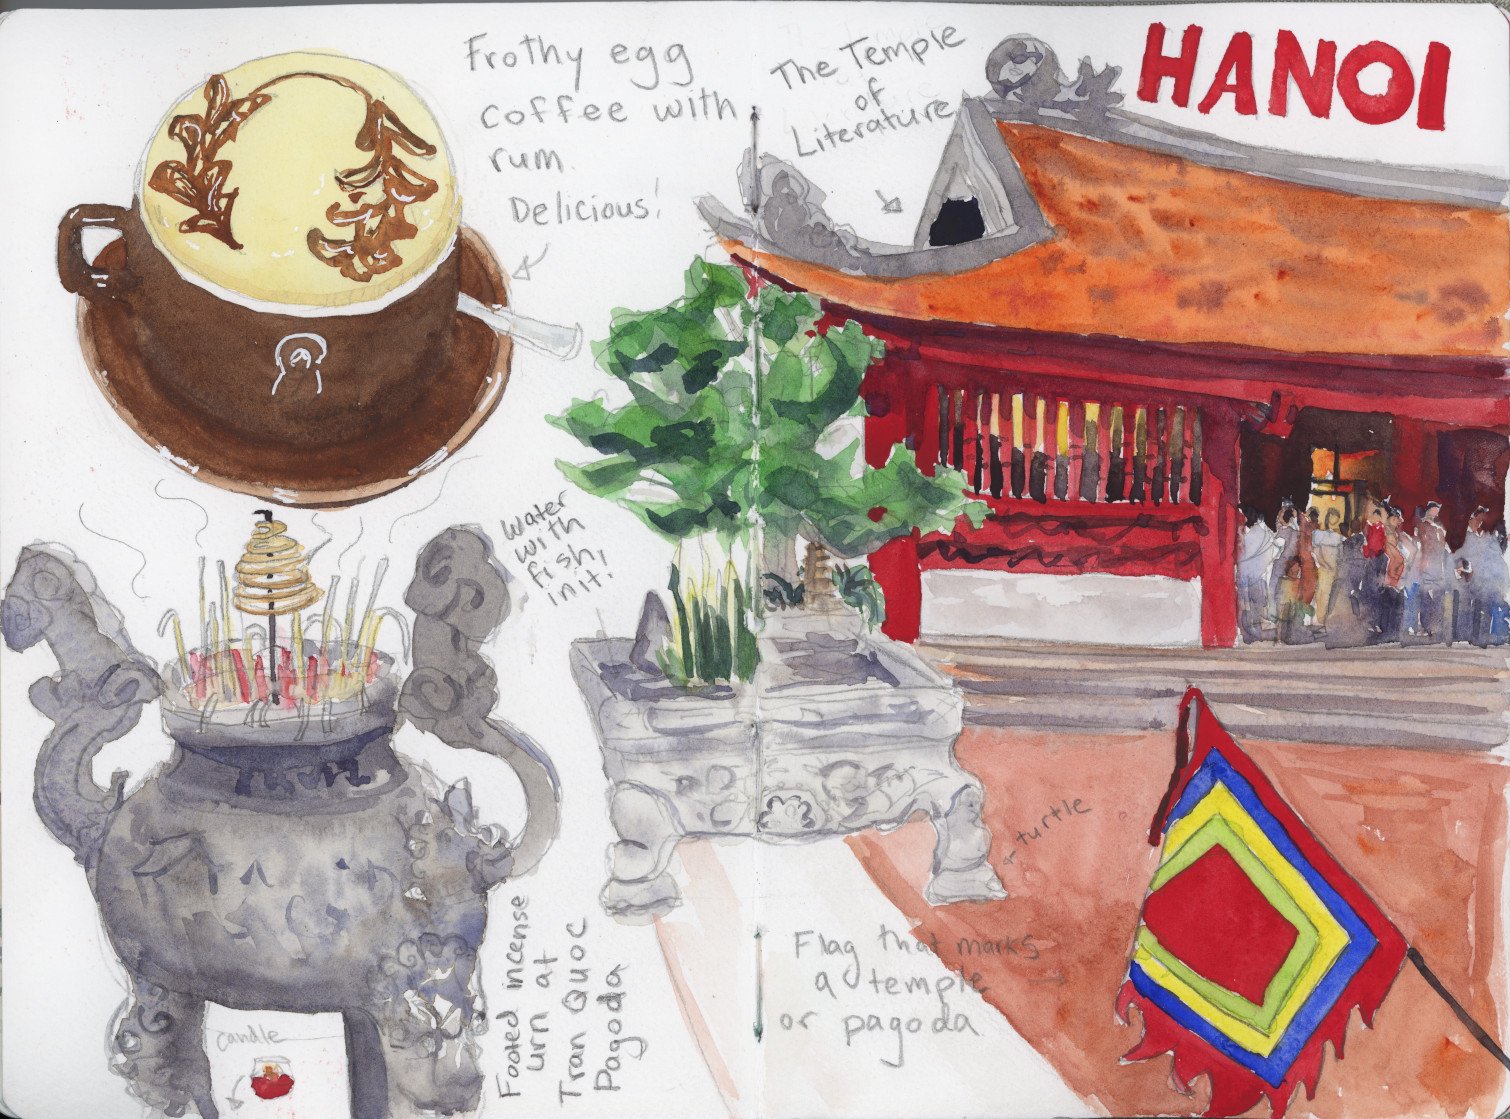 Frothy egg
coffee with
rum.
Delicious!
The Temple
of
Literature
HANOI
Water
with
fish,
init!
turtle
Footed incense
urn at
Tran Quoc
Pagoda
Flag that marks
a temple
or pagoda
candle